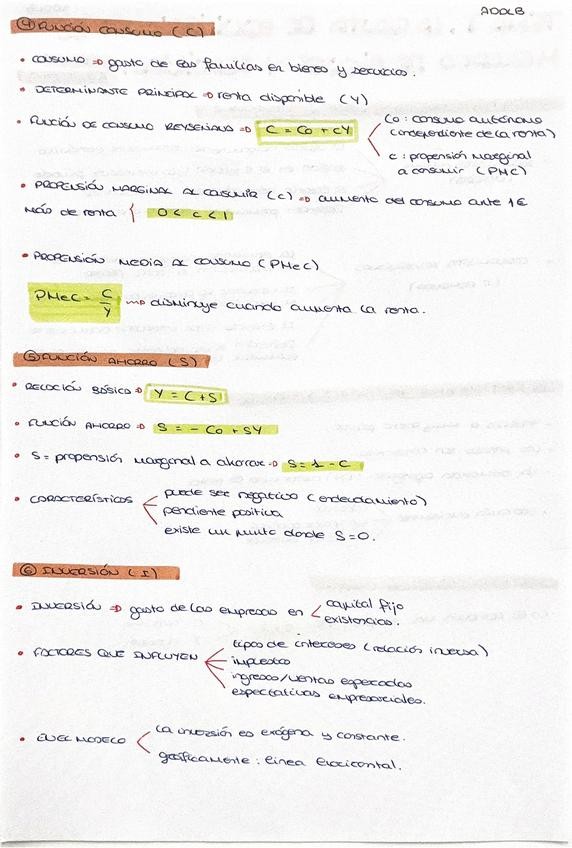 ADOLB
④ FUNCIÓN CONSUMO (C)
• CONSUMO ⇒ gasto de las familias en bienes y servicios.
• DETERMINANTE PRINCIPAL ⇒ renta disponible (Y)
• FUNCIÓN DE CONSUMO KEYNESIANO ⇒ C = Co + cY
Co: consumo autónomo
(independiente de la renta)
c: propensión marginal
a consumir (PMC)
• PROPENSIÓN MARGINAL AL CONSUMIR (c) ⇒ aumento del consumo ante 1€
MÁS de renta { 0 < c < 1
• PROPENSIÓN MEDIA AL CONSUMO (PMeC)
PMeC = C/Y → disminuye cuando aumenta la renta.
⑤ FUNCIÓN AHORRO (S)
• RELACIÓN BÁSICA ⇒ Y = C + S
• FUNCIÓN AHORRO ⇒ S = - Co + SY
• S = propensión marginal a ahorrar ⇒ S = 1 - C
• CARACTERÍSTICAS
puede ser negativo (endeudamiento)
pendiente positiva
existe un punto donde S=0.
⑥ INVERSIÓN (I)
• INVERSIÓN ⇒ gasto de las empresas en
capital fijo
existencias.
• FACTORES QUE INFLUYEN
tipos de intereses (relación inversa)
impuestos
ingresos/ventas esperadas
expectativas empresariales.
• EN EL MODELO
la inversión es exógena y constante.
gráficamente: línea horizontal.